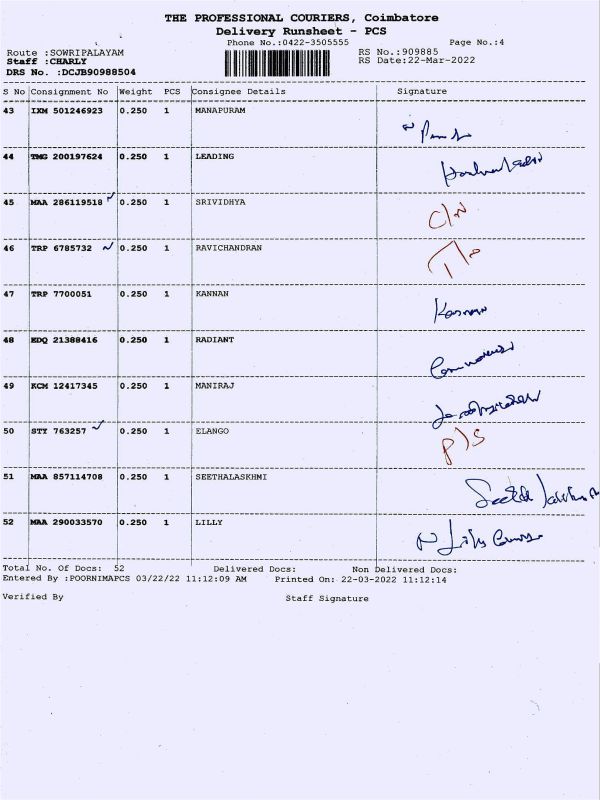 THE PROFESSIONAL COURIERS, Coimbatore
Delivery Runsheet - PCS
Phone No.:0422-3505555 Page No.:4
Route :SOWRIPALAYAM RS No.:909885
Staff :CHARLY RS Date:22-Mar-2022
DRS No. :DCJB90988504
S No Consignment No Weight PCS Consignee Details Signature
43 IXM 501246923 0.250 1 MANAPURAM
44 TMG 200197624 0.250 1 LEADING
45 MAA 286119518 0.250 1 SRIVIDHYA C/N
46 TRP 6785732 0.250 1 RAVICHANDRAN
47 TRP 7700051 0.250 1 KANNAN Kannan
48 EDQ 21388416 0.250 1 RADIANT
49 KCM 12417345 0.250 1 MANIRAJ
50 STY 763257 0.250 1 ELANGO P/S
51 MAA 857114708 0.250 1 SEETHALASKHMI
52 MAA 290033570 0.250 1 LILLY
Total No. Of Docs: 52 Delivered Docs: Non Delivered Docs:
Entered By :POORNIMAPCS 03/22/22 11:12:09 AM Printed On: 22-03-2022 11:12:14
Verified By Staff Signature